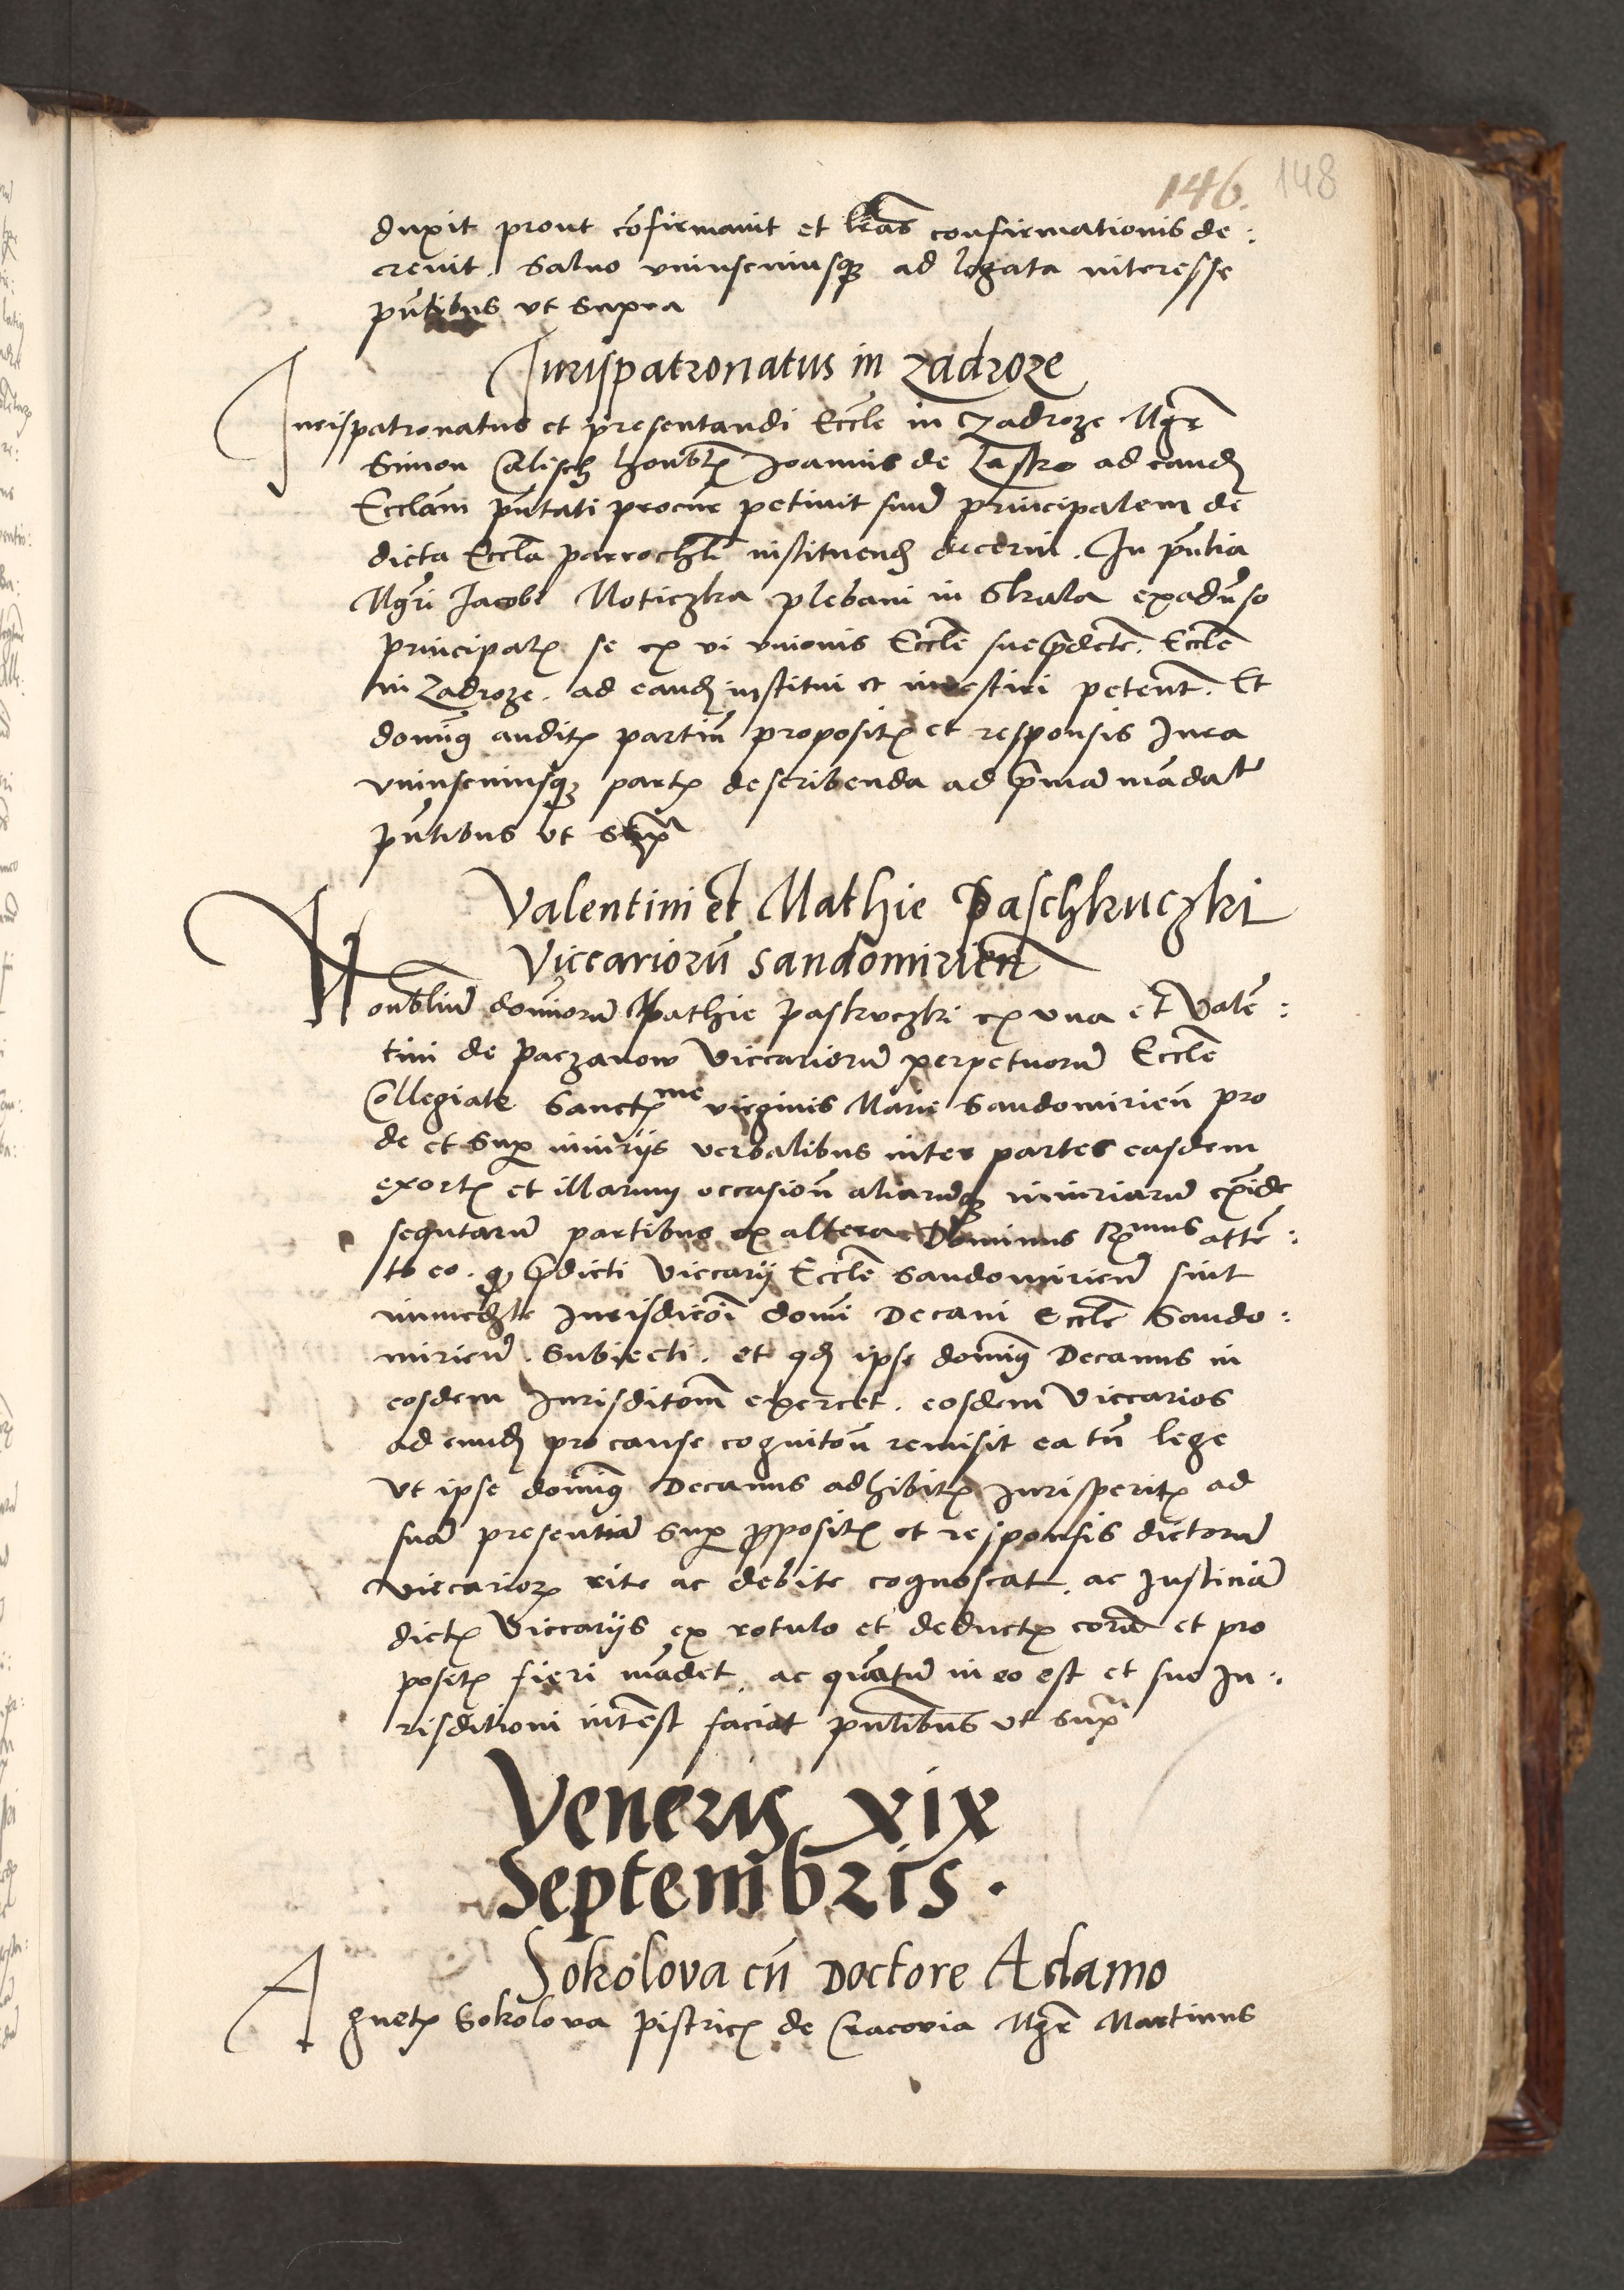 146. 148
duxit prout cōfirmavit et lr̄as confirmationis de:
crevit. Salvo uniuscuiusqȝ ad legata interesse
pn̄tibus ut supra
Jurispatronatus in Zadroze
Jurispatronatus et presentandi Eccl̄e in Czadroze Mgr̄
Simon honbl̄ Joannis de ad eand
Eccl̄am pn̄tati procur petivit suū principalem de
dicta Eccl̄a parrochl̄i instituend decerni. In pn̄tia
Mgr̄i Jacobi Noticzka plebani in Skala exadv̄so
principal se ex vi unionis Eccl̄e sue p̄dcte. Eccl̄e
in Zadroze. ad eand institui et investiri petent. Et
domin9 audit partiū proposit et responsis Jura
uniuscuiusqȝ part describenda ad p̄mā mādat
pn̄tibus ut sup̄
Valentini et Mathie Paschkuczki
Viccariorū Sandomirien̄
Honbliū dominorū Mathie Paskuczki ex una et Valē:
tini de Paczanow Viccariorū perpetuorū Eccl̄e
Collegiate Sanct me virginis Marie Sandomirien̄ pro
de et sup iniuriis verbalibus inter partes easdem
exort et illarum occasion̄ aliarūqȝ iniuriarū exīde
sequtarū partibus ex altera Dominus R mus attē:
to eo. qȝ p̄dicti Viccarij Eccl̄e Sandomirien̄ sint
immediate Jurisdicōi domi Decani Eccl̄e Sando:
mirien̄. Subiecti. et qd ipse domin9 Decanus in
eosdem Jurisditōnem exercet. eosdem Viccarios
ad eund pro cause cognitōn remisit ea tn̄ lege
Ut ipse domin9 Decanus adhibit Jurisperit ad
suā presentiā sup proposit et responsis dictorū
viccarior rite ac debite cognoscat. ac Justiciā
dict Viccarijs ex rotulo et deduct corā et pro
posit fieri mādet. ac quātū in eo est et sue Ju:
risditioni intest faciat pn̄tibus ut sup̄
Veneris xix
Septembris.
Sokolova cū Doctore Adamo
Agnet Sokolova pistric de Cracovia Mgr̄ Martinus